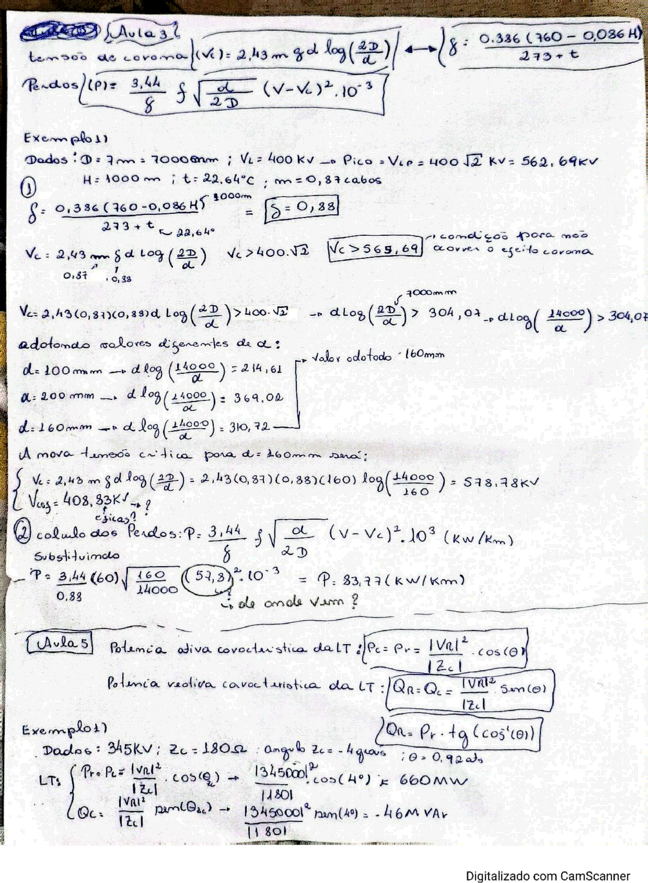 Aula 3
tensão de corona (Vc) = 2,43 m δ d log(2D/d) ↔ δ = 0.386 (760 - 0,086 H) / 273 + t
Perdas (P) = 3,44/δ f √(d/2D) (V-Vc)².10⁻³
Exemplo 1)
Dados: D = 7m = 7000mm ; VL = 400 KV → Pico = VLP = 400√2 KV = 562,69KV
H = 1000 m ; t = 22,64°C ; m = 0,87 cabos
①
δ = 0,386 (760 - 0,086 H) / 273 + t = δ = 0,88
1000m
22,64°
Vc = 2,43 m δ d log(2D/d) Vc > 400.√2 Vc > 565,69 → condição para não
ocorrer o efeito corona
0,87 0,88
Vc = 2,43(0,87)(0,88)d log(2D/d) > 400.√2 → d log(2D/d) > 304,07 → d log(14000/d) > 304,07
7000mm
adotando valores diferentes de d:
d = 100 mm → d log(14000/d) = 214,61
valor adotado · 160mm
d = 200 mm → d log(14000/d) = 369,02
d = 160mm → d log(14000/d) = 310,72
A nova tensão crítica para d = 160mm será:
Vc = 2,43 m δ d log(2D/d) = 2,43(0,87)(0,88)(160) log(14000/160) = 578,78KV
= 408,83KV → ?
② calculo dos Perdas: P = 3,44/δ f √(d/2D) (V-Vc)².10³ (KW/Km)
Substituindo
P = 3,44/0,88 (60) √(160/14000) (57,3)².10⁻³ = P = 83,77 (KW/Km)
de onde vem ?
Aula 5 Potencia ativa caracteristica da LT : Pc = Pr = |VR|²/|Zc| . cos(θ)
Potencia reativa caracteristica da LT : QR = Qc = |VR|²/|Zc| sen(θ)
QR = Pr . tg (cos¹(θ))
Exemplo 1)
Dados : 345KV ; Zc = 180Ω : angulo Zc = -4 graus ; θ = 0,92
LT: Pr = Pc = |VR|²/|Zc| . cos(θzc) → |345000|²/|180| . cos(4°) = 660MW
Qc = |VR|²/|Zc| sen(θzc) → |345000|²/|180| sen(4°) = -46MVAr
Digitalizado com CamScanner